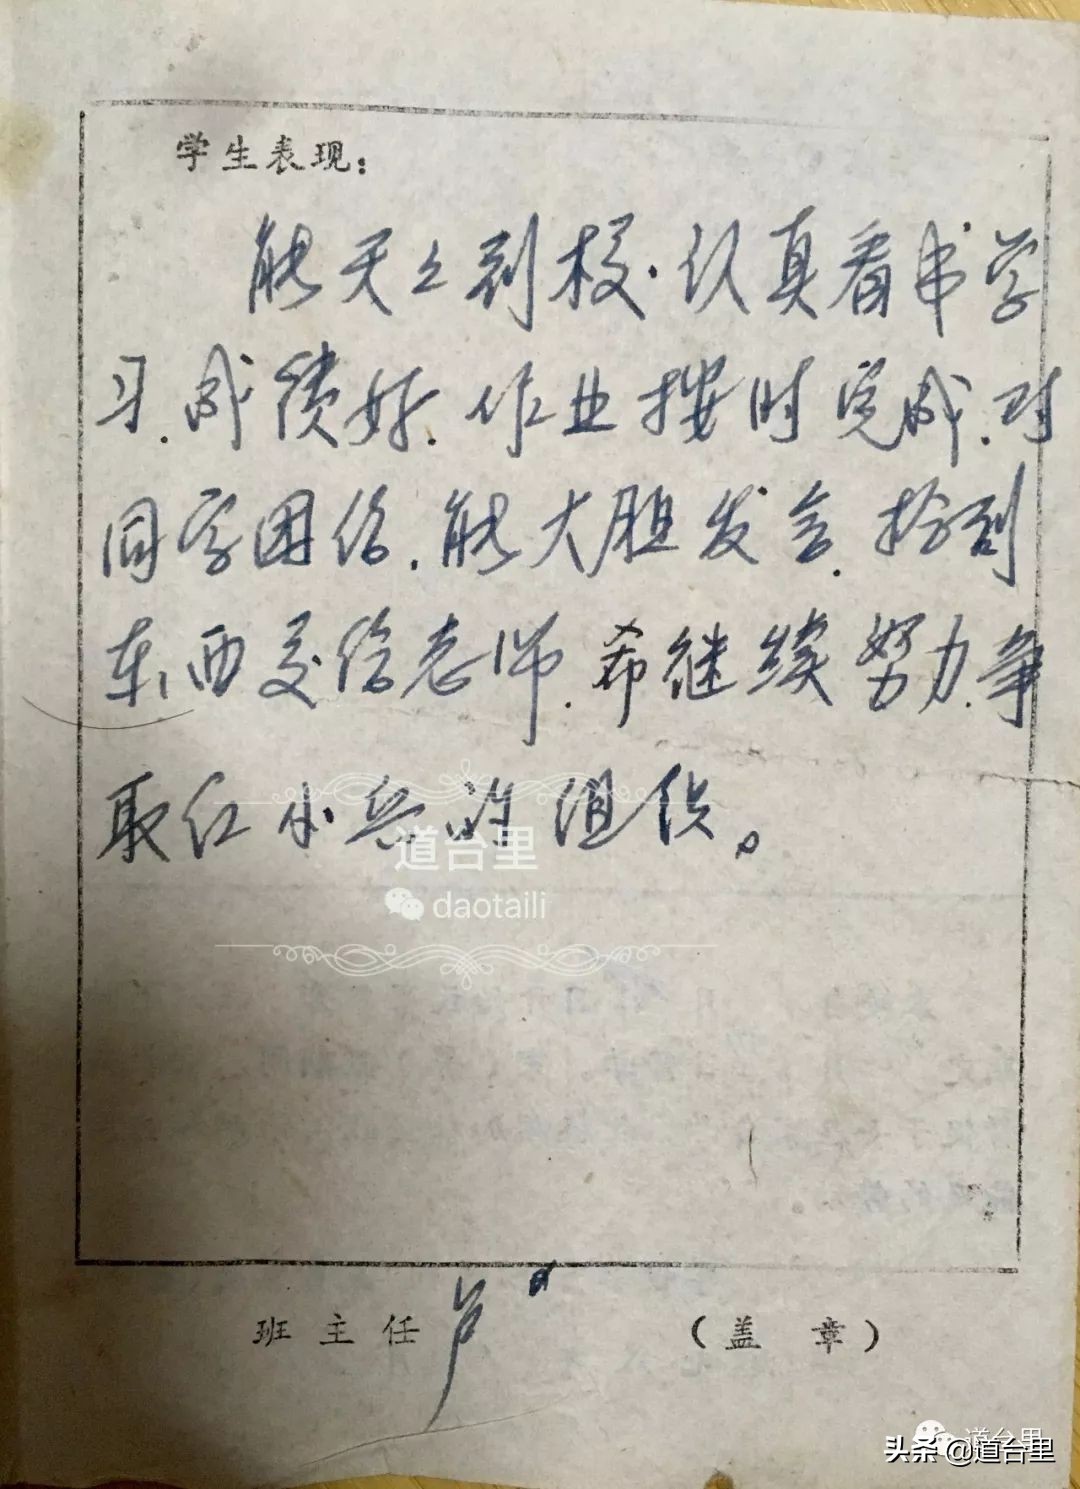 学生表现：
能天々到校.认真看书学
习.成绩好.作业按时完成.对
同学团结.能大胆发言.拾到
东西交给老师.希继续努力.争
取红小兵的组织。
道台里
daotaili
班主任 卢 （盖 章）
道台里
头条 @道台里